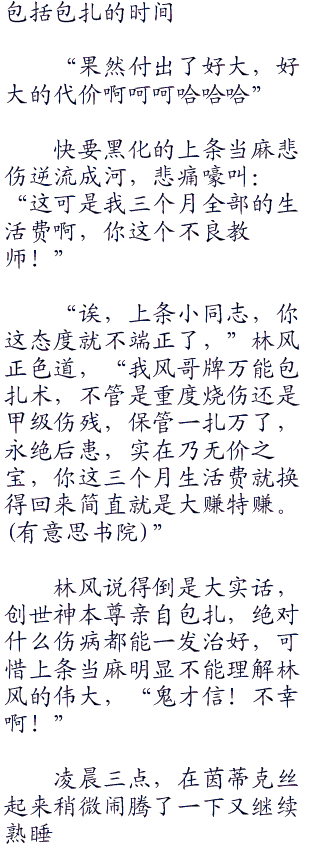 包括包扎的时间
“果然付出了好大，好
大的代价啊呵呵哈哈哈”
快要黑化的上条当麻悲
伤逆流成河，悲痛嚎叫：
“这可是我三个月全部的生
活费啊，你这个不良教
师！”
“诶，上条小同志，你
这态度就不端正了，”林风
正色道，“我风哥牌万能包
扎术，不管是重度烧伤还是
甲级伤残，保管一扎万了，
永绝后患，实在乃无价之
宝，你这三个月生活费就换
得回来简直就是大赚特赚。
(有意思书院)”
林风说得倒是大实话，
创世神本尊亲自包扎，绝对
什么伤病都能一发治好，可
惜上条当麻明显不能理解林
风的伟大，“鬼才信！不幸
啊！”
凌晨三点，在茵蒂克丝
起来稍微闹腾了一下又继续
熟睡